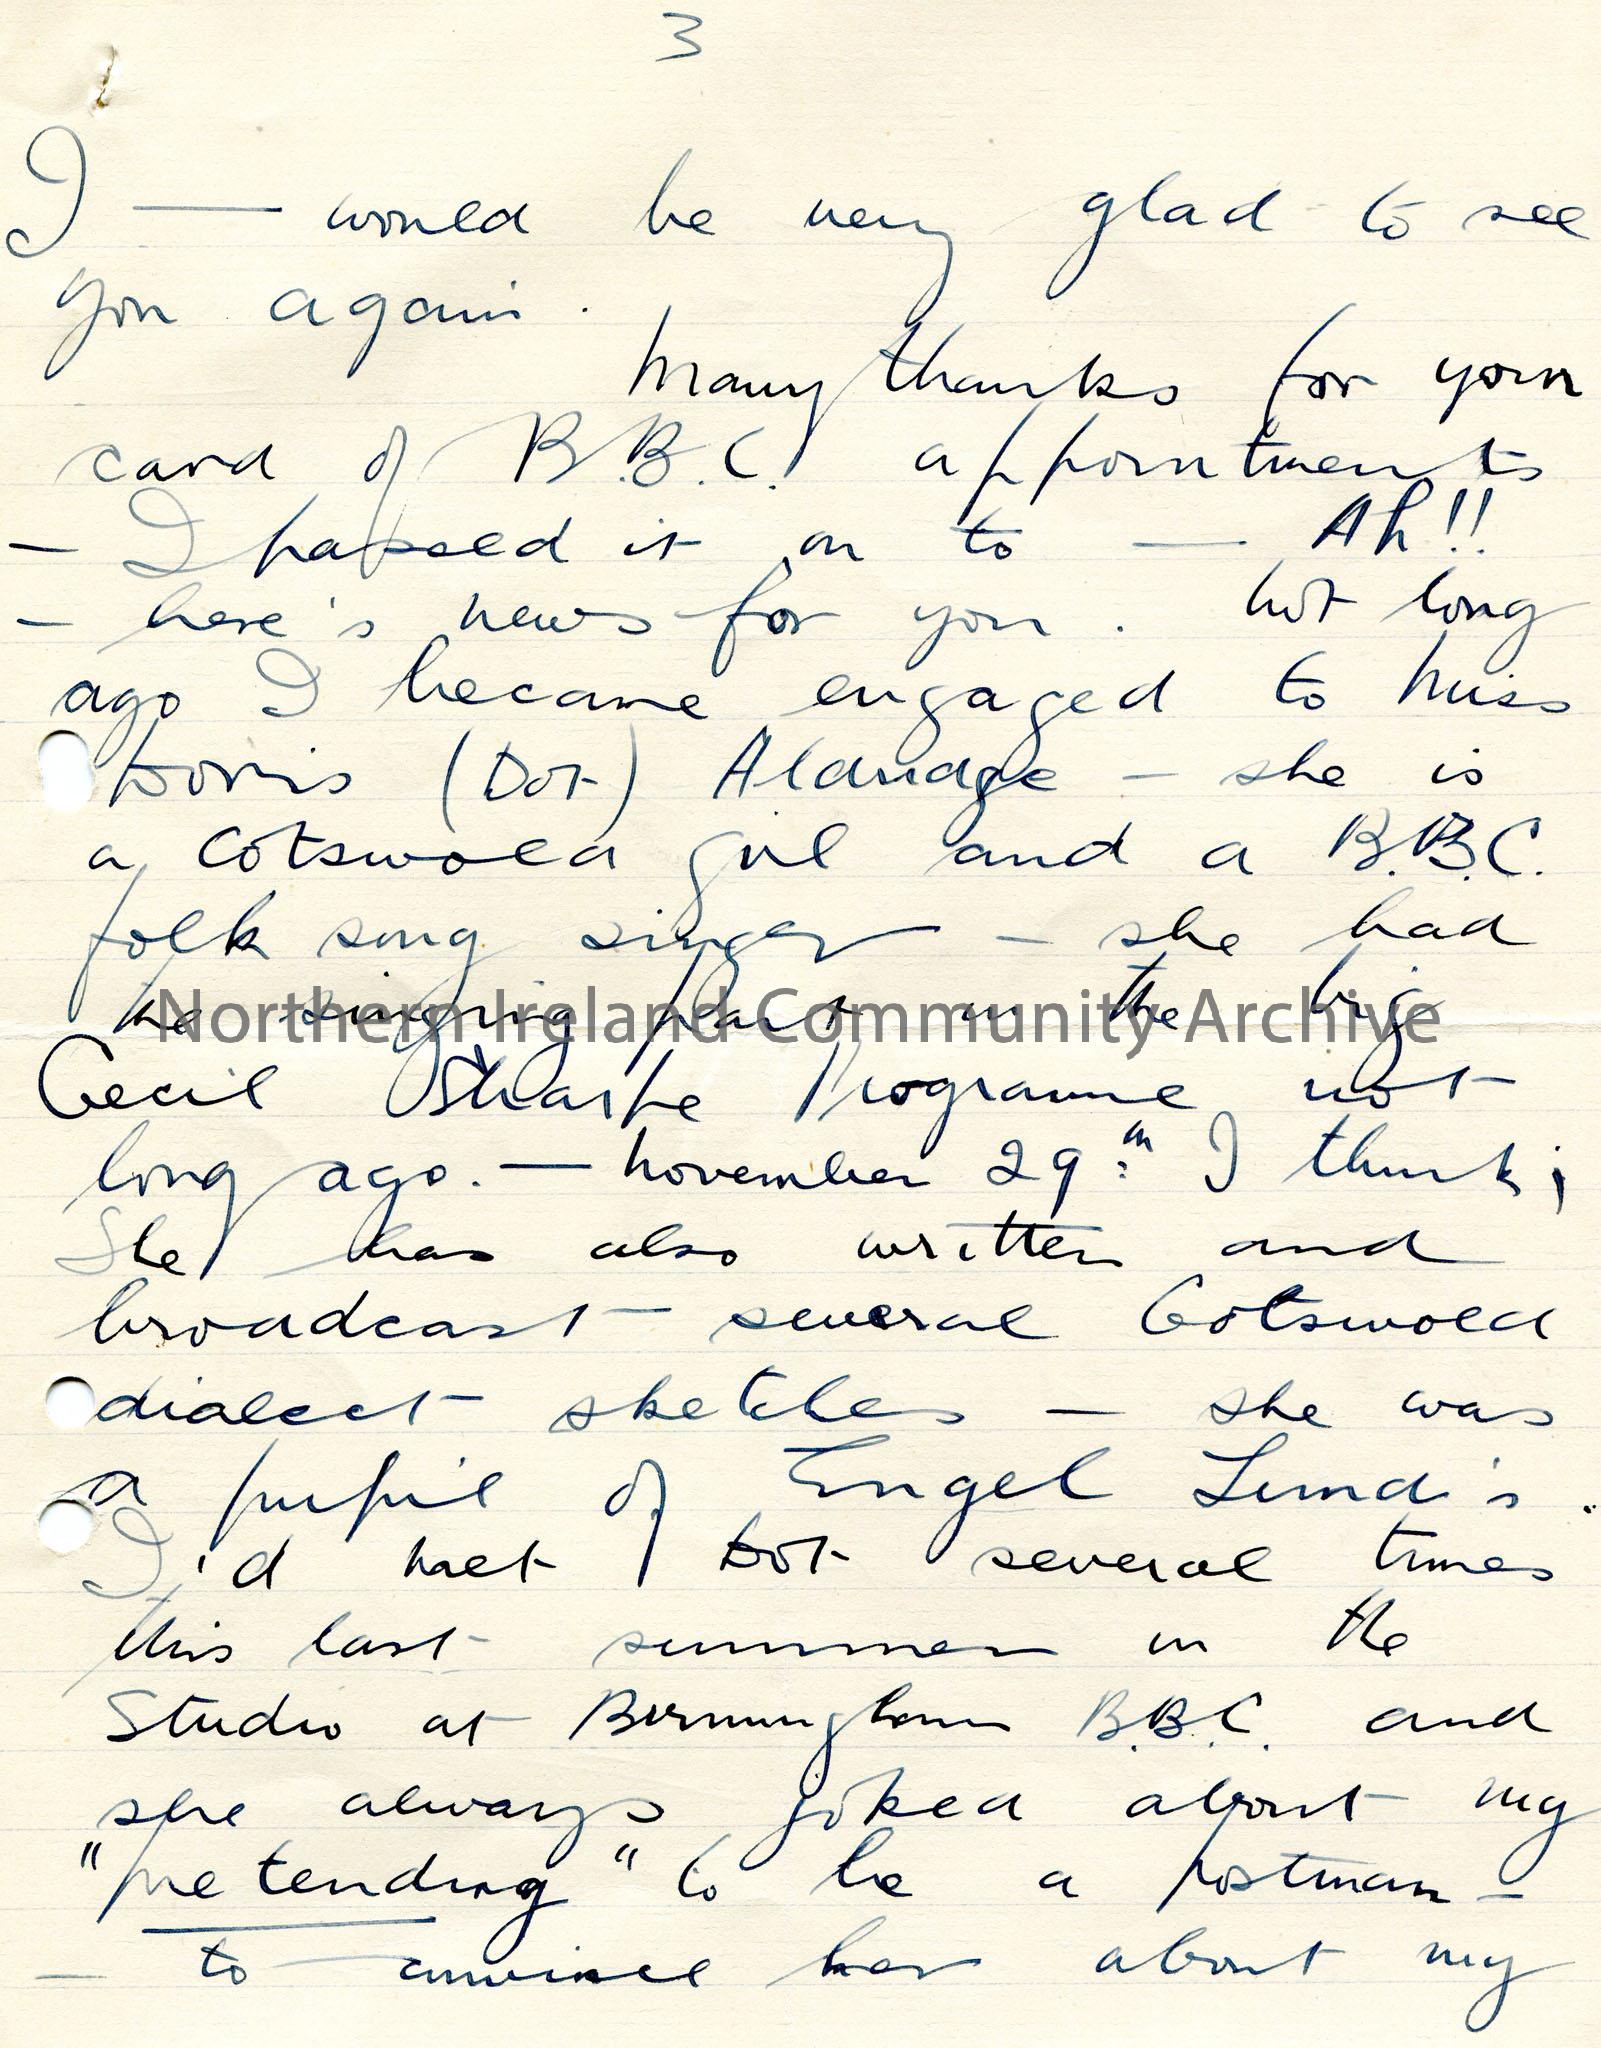 3
I — would be very glad to see
you again.
Many thanks for your
card of B.B.C. appointments
— I passed it on to — Ah!!
— here's news for you. Not long
ago I became engaged to Miss
Doris (Dot) Aldridge — she is
a Cotswold girl and a B.B.C.
folk song singer — she had
the singing part in the big
Northern Ireland Community Archive
Cecil Sharpe Programme not
long ago. — November 29th I think;
She has also written and
broadcast several Cotswold
dialect sketches — she was
a pupil of Engel Lund's.
I'd met Dot several times
this last summer in the
Studio at Birmingham B.B.C. and
she always joked about my
"pretending" to be a postman —
— to convince her about my